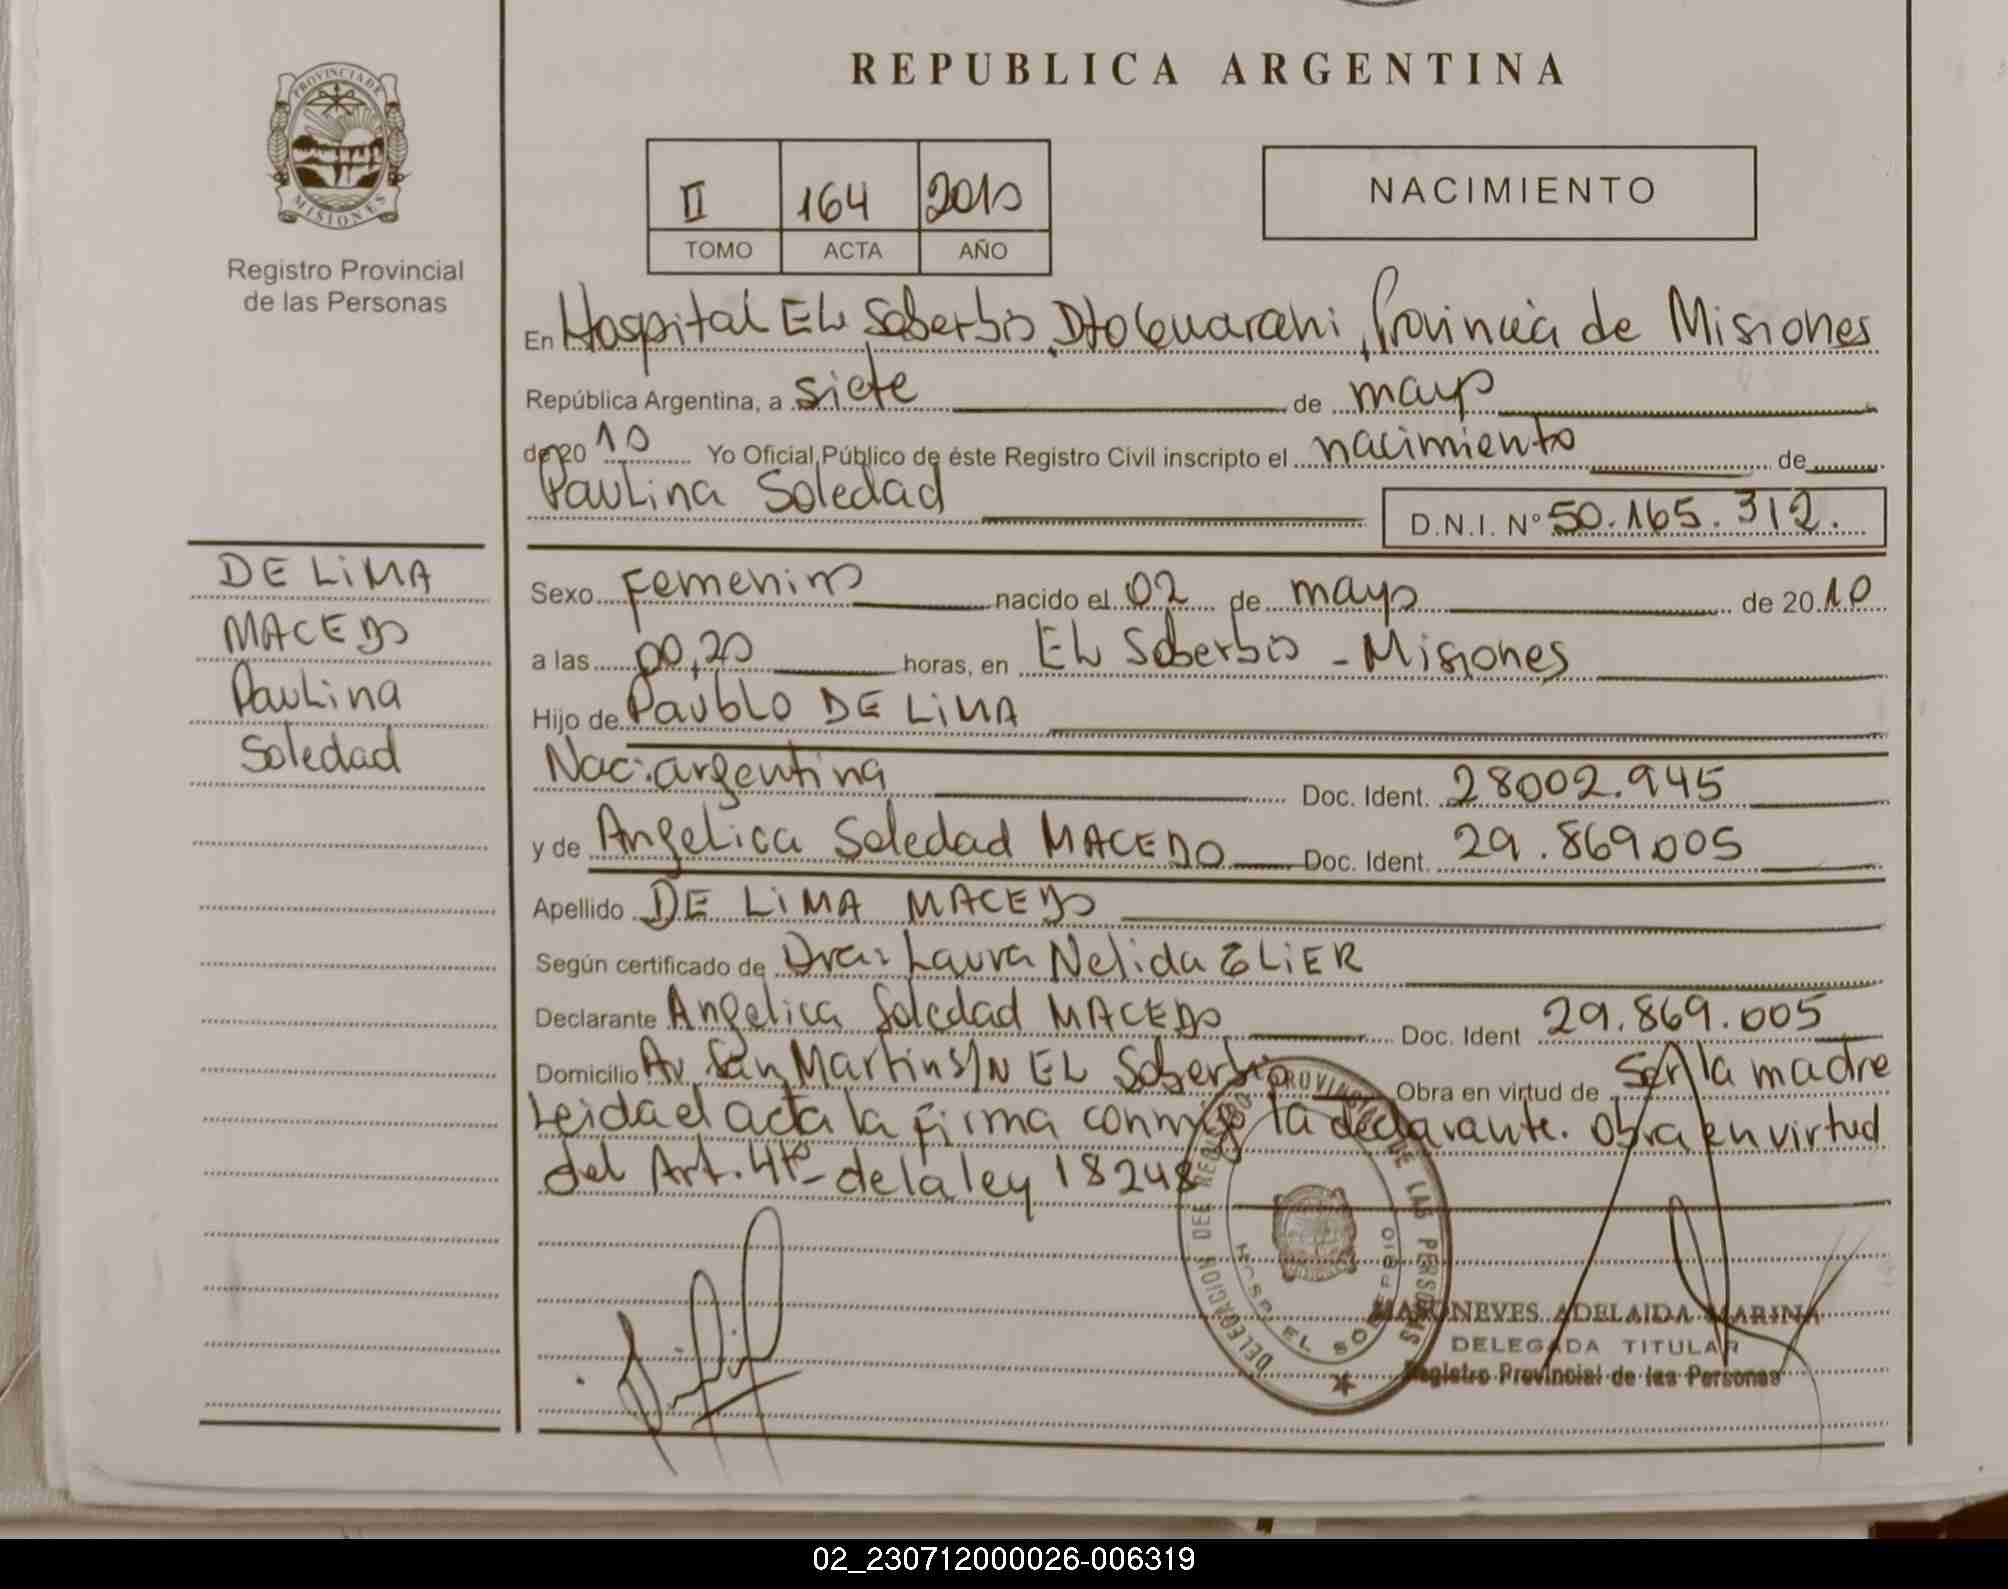 REPUBLICA ARGENTINA
PROVINCIA DE MISIONES
Registro Provincial
de las Personas
II 164 2010
TOMO ACTA AÑO
NACIMIENTO
En Hospital EL Soberbio, Dto Guarani, Provincia de Misiones
República Argentina, a siete de mayo
de 20 10 Yo Oficial Público de éste Registro Civil inscripto el nacimiento de
Paulina Soledad
D.N.I. N° 50.165.312.
DE LiMA
MACEDO
Paulina
Soledad
Sexo Femenino nacido el 02 de mayo de 20 10
a las 00,20 horas, en EL Soberbio - Misiones
Hijo de Paublo DE LiMA
Nac: argentina Doc. Ident. 28002.945
y de Angelica Soledad MACEDO Doc. Ident. 29.869.005
Apellido DE LiMA MACEDO
Según certificado de Dra: Laura Nelida ELiER
Declarante Angelica Soledad MACEDO Doc. Ident 29.869.005
Domicilio Av. San Martin S/N EL Soberbio Obra en virtud de Ser la madre
Leida el acta la firma conmigo la declarante. Obra en virtud
del Art. 4to de la ley 18248
DELEGACION DEL REGISTRO PROVINCIAL DE LAS PERSONAS
HOSP. EL SOBERBIO
ADELAIDA MARINA
DELEGADA TITULAR
Registro Provincial de las Personas
02_230712000026-006319